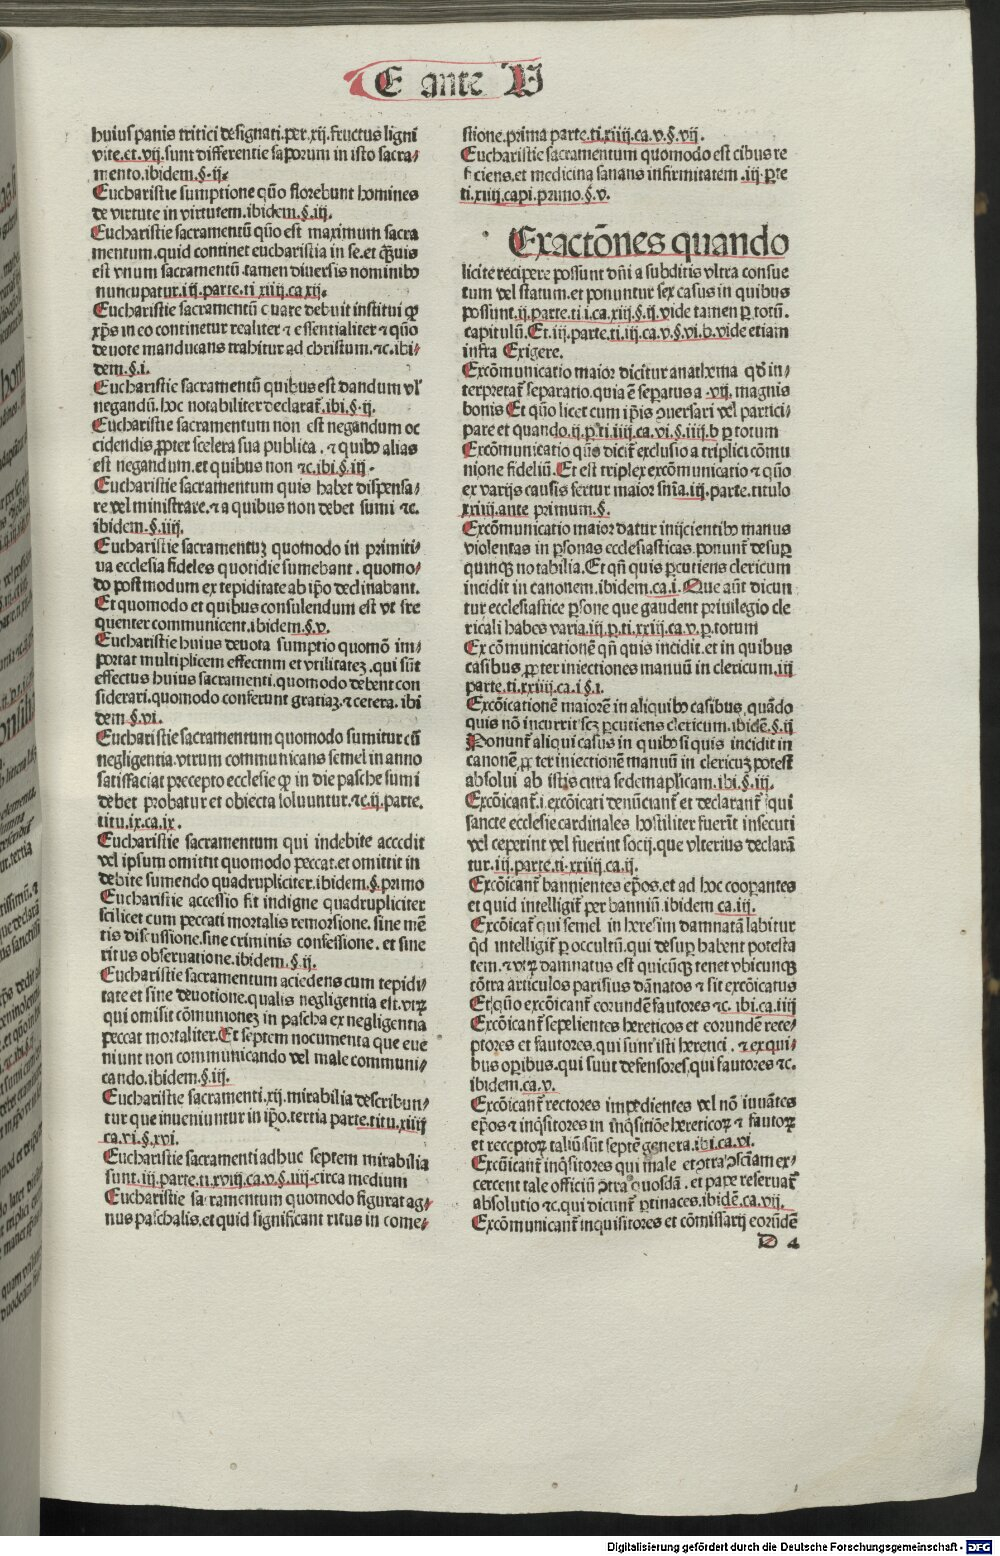 E ante V
huius panis tritici designati.per.xij.fructus ligni
vite.et.vij.sunt differentie saporum in isto sacra⸗
mento.ibidem.§.ij.
Eucharistie sumptione quõ florebunt homines
de virtute in virtutem.ibidem.§.iij.
Eucharistie sacramentũ quo est maximum sacra
mentum.quid continet eucharistia in se.et quis
est vnum sacramentũ.tamen diuersis nominibꝰ
nuncupatur.iij.parte.ti xiiij.ca xij.
Eucharistie sacramentũ c vare debuit institui ꝙ
xp̄s in eo continetur realiter ⁊ essentialiter ⁊ quõ
deuote manducans trahitur ad christum.⁊c.ibi⸗
dem.§.i.
Eucharistie sacramentũ quibus est dandum vl'
negandũ.hoc notabiliter declarat̃.ibi.§.ij.
Eucharistie sacramentum non est negandum oc
cidendis ꝓpter scelera sua publica.⁊ quibꝰ alias
est negandum.et quibus non ⁊c.ibi.§.iij.
Eucharistie sacramentum quis habet dispensa⸗
re vel ministrare.⁊ a quibus non debet sumi ⁊c.
ibidem.§.iiij.
Eucharistie sacramentuꝫ quomodo in primiti⸗
ua ecclesia fideles quotidie sumebant.quomo⸗
do postmodum ex tepiditate ab ip̃o declinabant.
Et quomodo et quibus consulendum est vt fre
quenter communicent.ibidem.§.v.
Eucharistie huius deuota sumptio quomõ im⸗
portat multiplicem effectum et vtilitateꝫ.qui sũt
effectus huius sacramenti.quomodo debent con
siderari.quomodo conferunt gratiaꝫ.⁊ cetera.ibi
dem.§.vi.
Eucharistie sacramentum quomodo sumitur cũ
negligentia.vtrum communicans semel in anno
satisfaciat precepto ecclesie ꝙ in die pasche sumi
debet probatur et obiecta soluuntur.⁊c.ij.parte.
titu.ix.ca.ix.
Eucharistie sacramentum qui indebite accedit
vel ipsum omittit quomodo peccat.et omittit in
debite sumendo quadrupliciter.ibidem.§.primo
Eucharistie accessio fit indigne quadrupliciter
scilicet cum peccati mortalis remorsione.sine mẽ
tis discussione.sine criminis confessione.et sine
ritus obseruatione.ibidem.§.ij.
Eucharistie sacramentum accedens cum tepidi⸗
tate et sine deuotione.qualis negligentia est.vtꝝ
qui omisit cõmunioneꝫ in pascha ex negligentia
peccat mortaliter.Et septem nocumenta que eue
niunt non communicando vel male communi⸗
cando.ibidem.§.iij.
Eucharistie sacramenti.xij.mirabilia describun⸗
tur que inueniuntur in ip̃o.tertia parte.titu.xiiij
ca.vi.§.xvi.
Eucharistie sacramenti adhuc septem mirabilia
sunt.iij.parte.ti.xvij.ca.v.§.iiij.circa medium
Eucharistie sa ramentum quomodo figurat ag⸗
nus paschalis.et quid significant ritus in come⸗
stione.prima parte.ti.xiiij.ca.v.§.vij.
Eucharistie sacramentum quomodo est cibus re
ficiens.et medicina sanans infirmitatem.iij.ꝑte
ti.xiiij.capi.primo.§.v.
Exactõnes quando
licite recipere possunt dñi a subditis vltra consue
tum vel statum.et ponuntur sex casus in quibus
possunt.ij.parte.ti i.ca.xiij.§.ij.vide tamen ꝑ totũ.
capitulũ.Et.iij.parte.ti.iij.ca.v.§.vi.b.vide etiam
infra Exigere.
Excõmunicatio maior dicitur anathema qd̃ in⸗
terpretat̃ separatio.quia ẽ seꝑatus a.vij.magnis
bonis Et quõ licet cum ip̃is ꝯuersari vel partici⸗
pare et quando.ij.ꝑ.ti.iiij.ca.vi.§.iiij.b ꝑ totum
Excõmunicatio qũs dicit̃ exclusio a triplici cõmu
nione fideliũ.Et est triplex excõmunicatio ⁊ quõ
ex varijs causis fertur maior sñia.iij.parte.titulo
xxiiij.ante primum.§.
Excõmunicatio maior datur inijcientibꝰ manus
violentas in ꝑsonas ecclesiasticas.ponunt̃ desuꝑ
quinqꝫ notabilia.Et qñ quis ꝑcutiens clericum
incidit in canonem.ibidem.ca.i.Que aũt dicun
tur ecclesiastice ꝑsone que gaudent priuilegio cle
ricali habes varia.iij.ꝑ.ti.xxiij.ca.v.ꝑ.totum
Excõmunicationẽ qñ quis incidit.et in quibus
casibus ꝓpter iniectiones manuũ in clericum.iij
parte.ti.xxiiij.ca.i §.i.
Excõicationẽ maiorẽ in aliquibꝰ casibus quãdo
quis nõ incurrit scꝫ ꝑcutiens clericum.ibidẽ.§.ij
Ponunt̃ aliqui casus in quibꝰ si quis incidit in
canonẽ ꝓpter iniectionẽ manuũ in clericuꝫ potest
absolui ab istis cura sedem aplicam.ibi.§.iij.
Excõicant̃.i.excõicati denũciant̃ et declarant̃ qui
sancte ecclesie cardinales hostiliter fuerĩt insecuti
vel ceperint vel fuerint socij.que vlterius declarã
tur.iij.parte.ti.xxiiij ca.ij.
Excõicant̃ bannientes ep̃os.et ad hoc cooꝑantes
et quid intelligit̃ per banniũ.ibidem ca.iij.
Excõicat̃ qui semel in heresim damnatã labitur
qd̃ intelligit̃ ꝑ occultũ.qui desuꝑ habent potesta
tem.⁊ vtꝝ damnatus est quicũqꝫ tenet vbicunqꝫ
cõtra articulos parisius dãnatos ⁊ sit excõicatus
Et quõ excõicant̃ eorundẽ fautores ⁊c.ibi.ca.iiij
Excõicant̃ sepelientes hereticos et eorundẽ rece⸗
ptores et fautores.qui sunt isti heretici.⁊ ex qui⸗
bus oꝑibus.qui suut defensores.qui fautores ⁊c.
ibidem.ca.v.
Excõicant̃ rectores impedientes vel nõ iuuãtes
ep̃os ⁊ inq̃sitores in inq̃sitiõe hereticoꝝ ⁊ fautoꝝ
et receptoꝝ taliũ sũt septẽ genera.ibi.ca.vi.
Excũicant̃ inq̃sitores qui male et ꝯtra ꝯsciam ex⸗
cercent tale officiũ ꝯtra quosdã.et pape reseruat̃
absolutio ⁊c.qui dicunt̃ ꝑtinaces.ibidẽ.ca.vij.
Excõmunicant̃ inquisitores et cõmissarij eorũdẽ
D 4
Digitalisierung gefördert durch die Deutsche Forschungsgemeinschaft - DFG